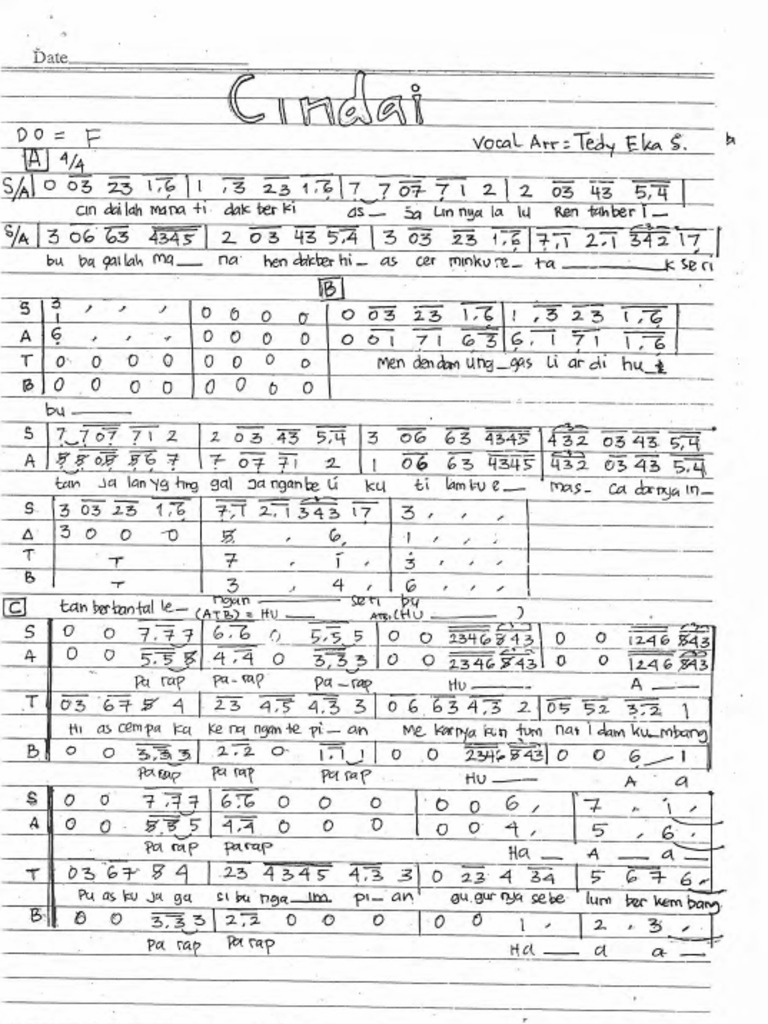 Date
Cindai
DO = F
Vocal Arr = Tedy Eka S.
A 4/4
S/A | 0 03 23 1,6 | 1 ,3 23 1,6 | 7 7 07 7 1 2 | 2 03 43 5,4 |
cin dailah mana ti dak ber ki as_ sa linnya la lu Ren tahber i_
S/A | 3 06 63 4345 | 2 03 43 5,4 | 3 03 23 1,6 | 7,1 2,1 342 17 |
bu ba gailah ma__ na hendakberhi_ as cer minkure_ ta ____ k seri
B
S | 3 1 , , , | 0 0 0 0 | 0 03 23 1,6 | 1 ,3 23 1,6
A | 6 , , , | 0 0 0 0 | 0 01 71 63 | 6,1 71 1,6
T | 0 0 0 0 | 0 0 0 0 | Men dendam ung_gas li ar di hu_t
B | 0 0 0 0 | 0 0 0 0 |
bu ____
S | 7 7 07 71 2 | 2 03 43 5,4 | 3 06 63 4345 | 432 03 43 5,4
A | 5 5 05 56 7 | 7 07 71 2 | 1 06 63 4345 | 432 03 43 5,4
tan ja lan yg ting gal Janganbe li ku ti lambu e_ mas_ ca darnya in_
S | 3 03 23 1,6 | 7,1 2,1 343 17 | 3 , , ,
A | 3 0 0 0 | 5 , 6, | 1 , , ,
T | T | 7 , 1, | 3 , , ,
B | T | 3 , 4, | 6 , , ,
C tan berbantal le_ ngan ____ seri bu
(ATB) = HU ____ ATB (HU ____ )
S | 0 0 7,77 | 6,6 0 5,5 5 | 0 0 2346 543 | 0 0 1246 543
A | 0 0 5,5 5 | 4,4 0 3,33 | 0 0 2346 543 | 0 0 1246 543
Pa rap pa-rap Pa-rap Hu ____ A ____
T | 03 67 5 4 | 23 4,5 4,3 3 | 0 6 63 4,3 2 | 05 52 3,2 1
Hi as cempa ka ke na ngan te pi_ an Me karnya kun tum nan i dam ku_mbang
B | 0 0 3,33 | 2,2 0 1,1 1 | 0 0 2346 543 | 0 0 6_1
Pa rap Pa rap pa rap HU ____ A a
S | 0 0 7,77 | 6,6 0 0 0 | 0 0 6, | 7 , 1,
A | 0 0 5,5 5 | 4,4 0 0 0 | 0 0 4, | 5 , 6,
Pa rap parap Ha _ A _ a _
T | 03 67 5 4 | 23 4345 4,3 3 | 0 23 4 34 | 5 6 7 6,
Pu as ku ja ga si bu nga_im pi_ an gu.gurnya sebe lum ber kem bang
B | 0 0 3,33 | 2,2 0 0 0 | 0 0 1, | 2 , 3,
Pa rap Pa rap Ha __ a a _